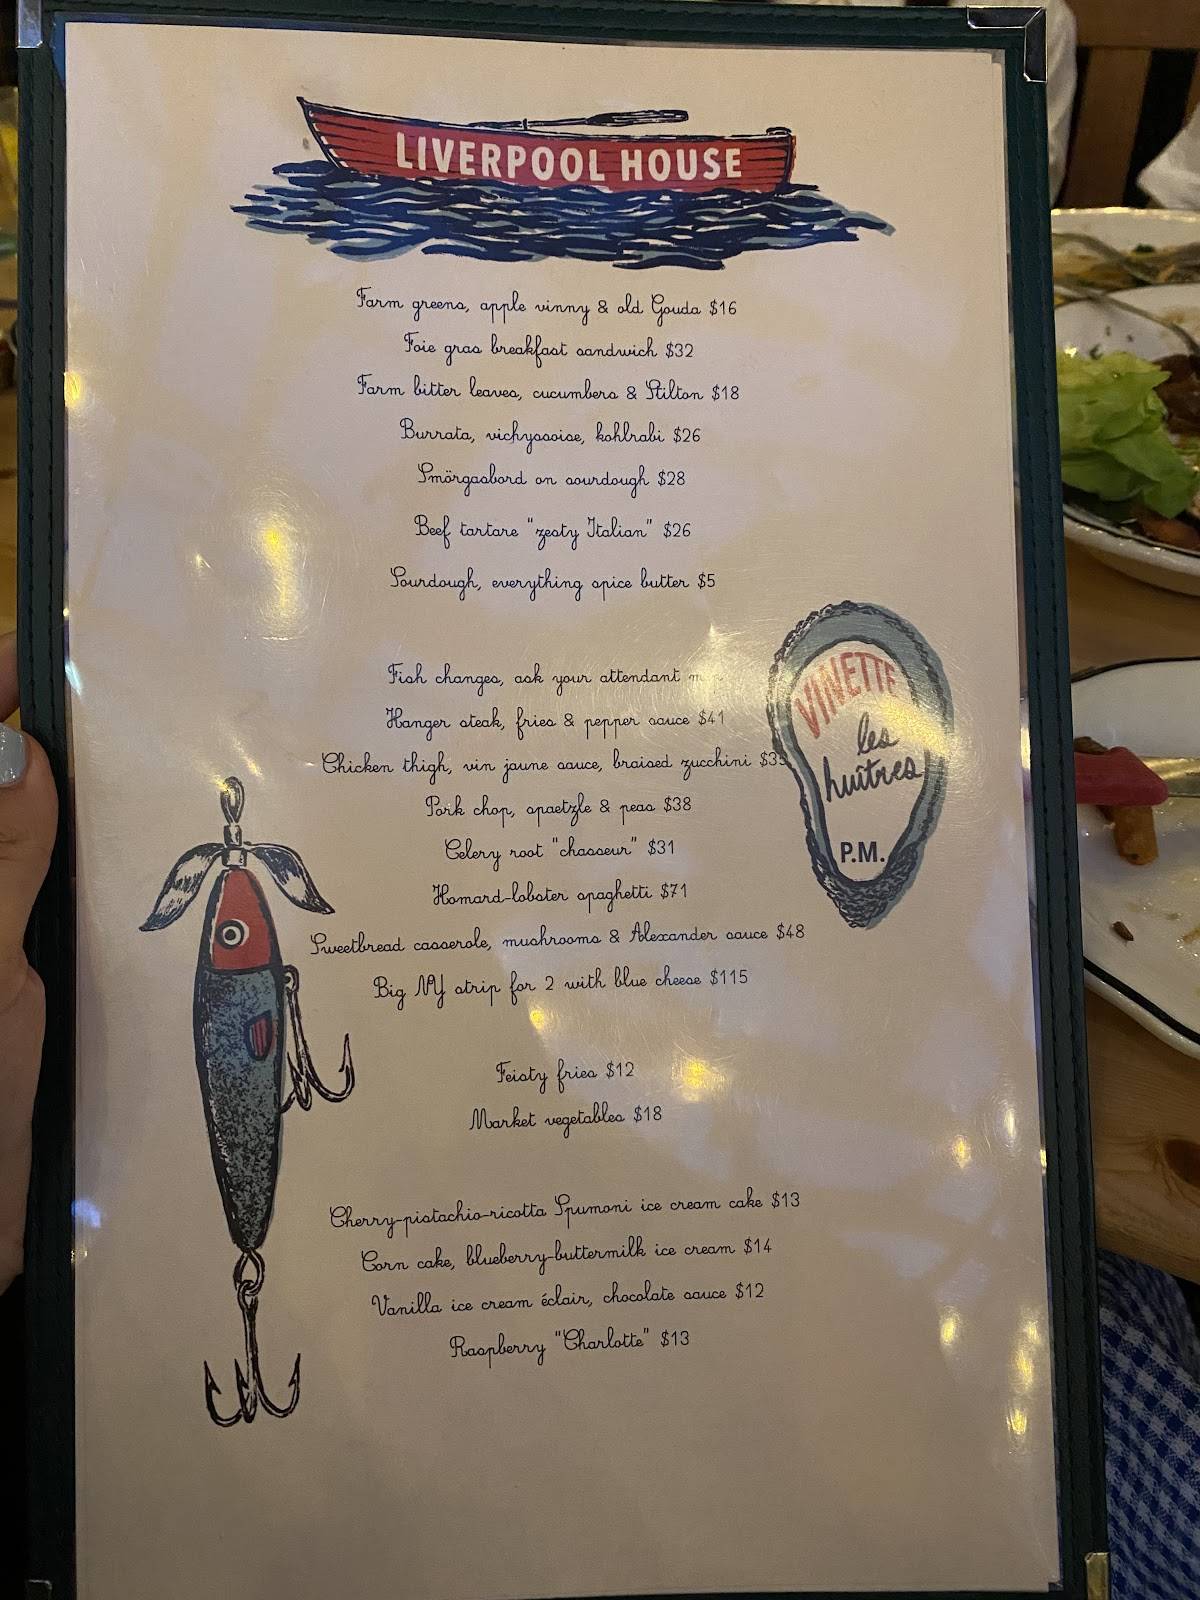 LIVERPOOL HOUSE
Farm greens, apple vinny & old Gouda $16
Foie gras breakfast sandwich $32
Farm bitter leaves, cucumbers & Stilton $18
Burrata, vichyssoise, kohlrabi $26
Smörgasbord on sourdough $28
Beef tartare "zesty Italian" $26
Sourdough, everything spice butter $5
Fish changes, ask your attendant
Hanger steak, fries & pepper sauce $41
Chicken thigh, vin jaune sauce, braised zucchini
Pork chop, spaetzle & peas $38
Celery root "chasseur" $31
Homard-lobster spaghetti $71
Sweetbread casserole, mushrooms & Alexander sauce $48
Big NY strip for 2 with blue cheese $115
VINETTE
les
huîtres
P.M.
Feisty fries $12
Market vegetables $18
Cherry-pistachio-ricotta Spumoni ice cream cake $13
Corn cake, blueberry-buttermilk ice cream $14
Vanilla ice cream éclair, chocolate sauce $12
Raspberry "Charlotte" $13